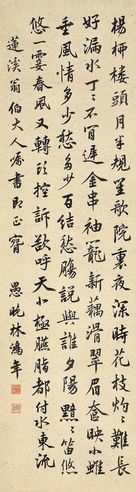 楊柳樓頭月半規笙歌院裏夜深時花枝灼灼難長
好漏水丁丁不肯遲金串袖籠新藕滑翠眉奩映小蛾
垂風情多少愁多少百結愁腸說與誰夕陽黯黯笛悠
悠一霎春風又轉頭控訴欲呼天小極臙脂都付水東流
蓮溪翁伯大人屬書即正
愚晚林鴻年